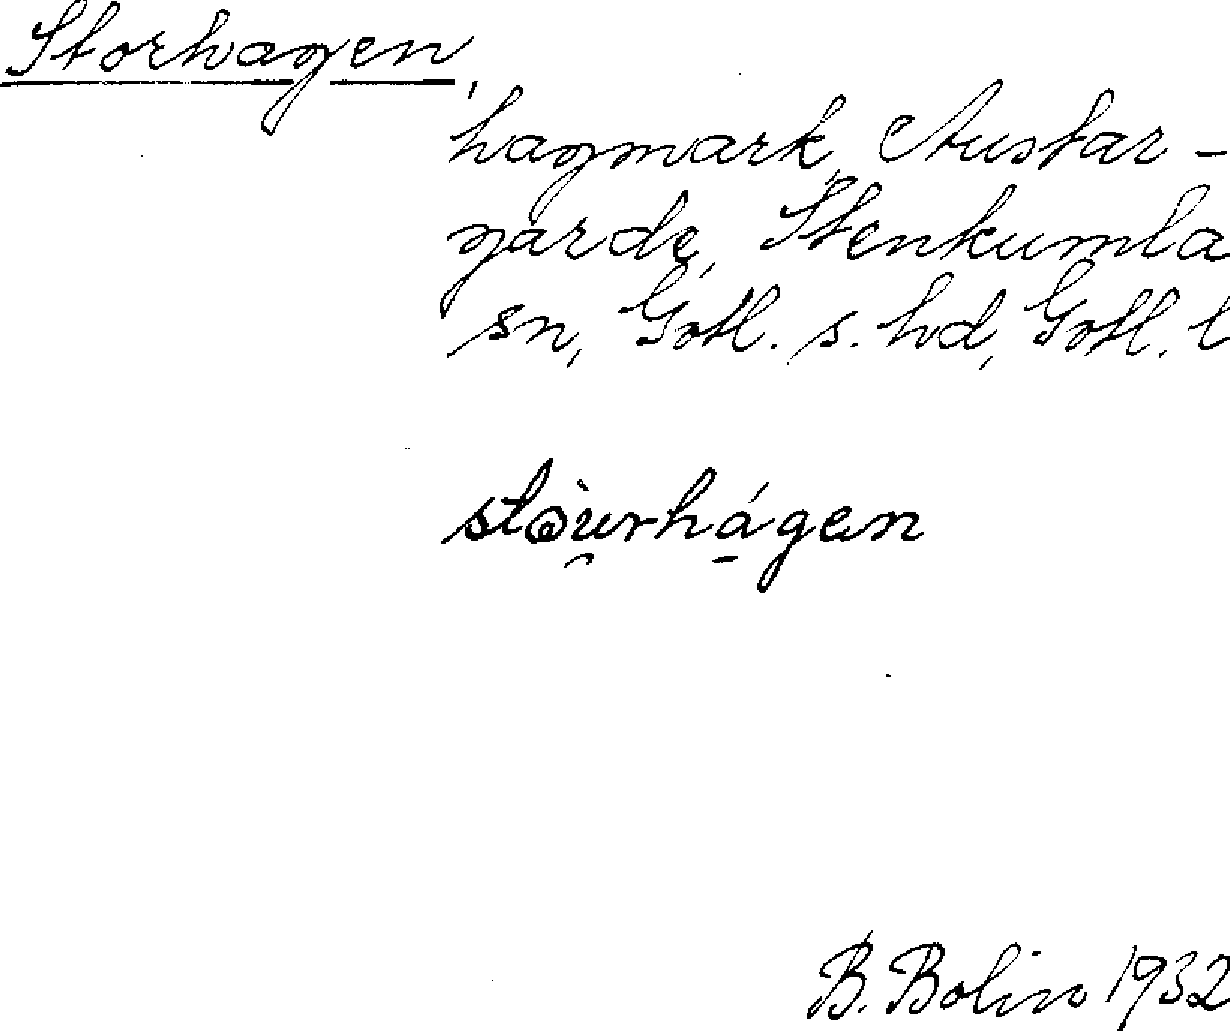 Storhagen,
hagmark, Austar-
garde, Stenkumla
sn, Gotl. s. hd, Gotl. l
B. Bolin 1932